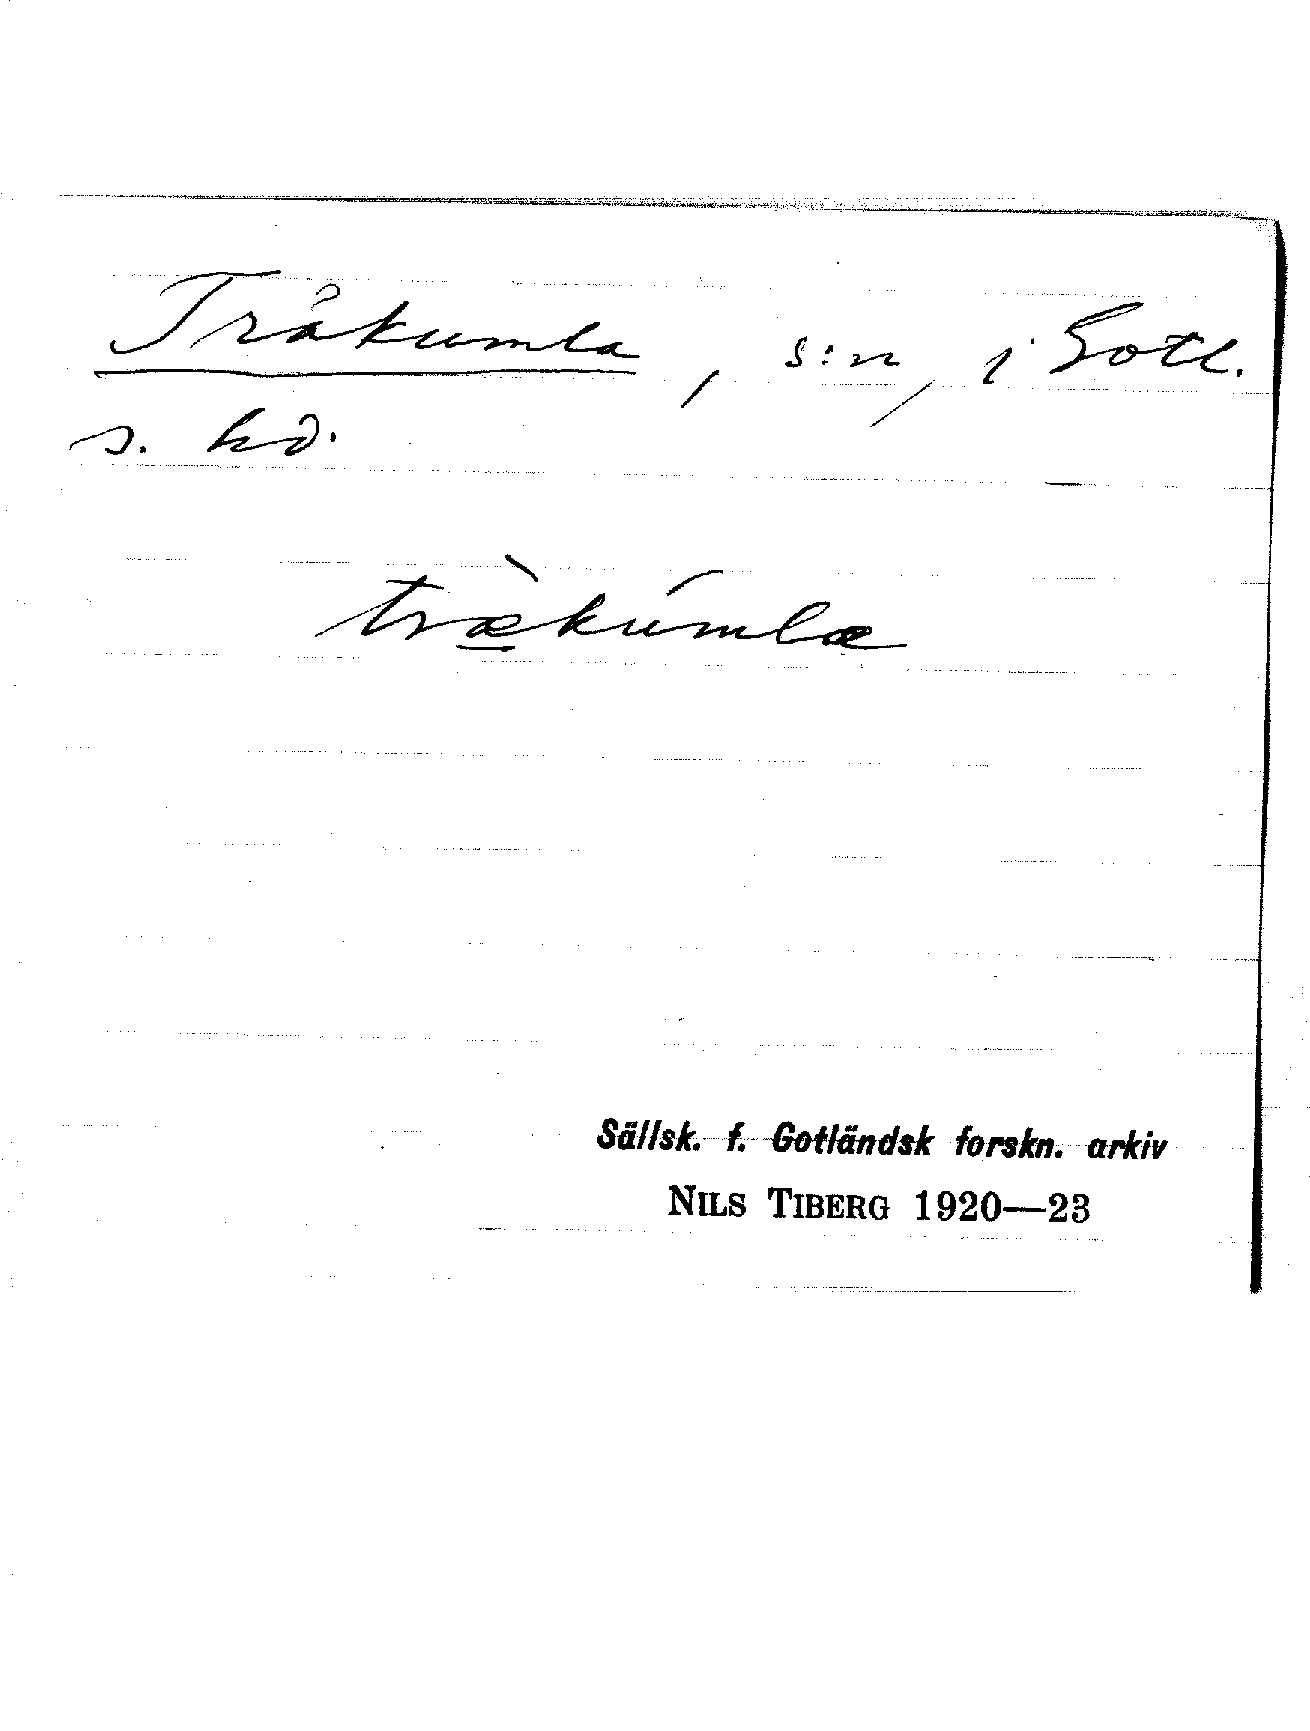 Tråkumla, s:n, i Gotl.
s. hd.
træ̠̀kúmlæ
Sällsk. f. Gotländsk forskn. arkiv
NILS TIBERG 1920—23